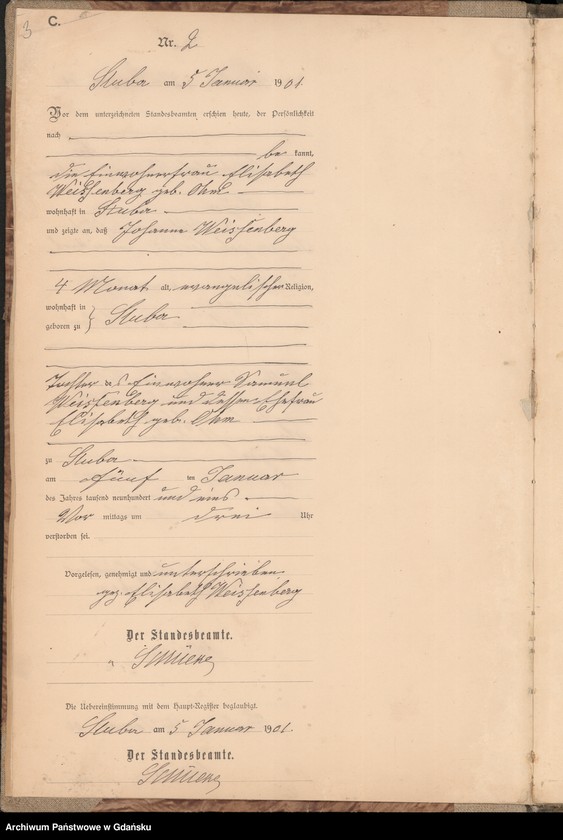 3
C.
Nr. 2
Stuba am 5 Januar 1901.
Vor dem unterzeichneten Standesbeamten erschien heute, der Persönlichkeit
nach
be kannt,
die Einwohnerfrau Elisabeth
Weissenberg geb. Ohm
wohnhaft in Stuba
und zeigte an, daß Johanne Weissenberg
4 Monat alt, evangelischer Religion,
wohnhaft in
geboren zu } Stuba
Tochter des Einwohner Samuel
Weissenberg und dessen Ehefrau
Elisabeth geb. Ohm
zu Stuba
am fünf ten Januar
des Jahres tausend neunhundert und eins
Vor mittags um drei Uhr
verstorben sei.
Vorgelesen, genehmigt und unterschrieben
gez. Elisabeth Weissenberg
Der Standesbeamte.
Die Uebereinstimmung mit dem Haupt-Register beglaubigt.
Stuba am 5 Januar 1901.
Der Standesbeamte.
Archiwum Państwowe w Gdańsku